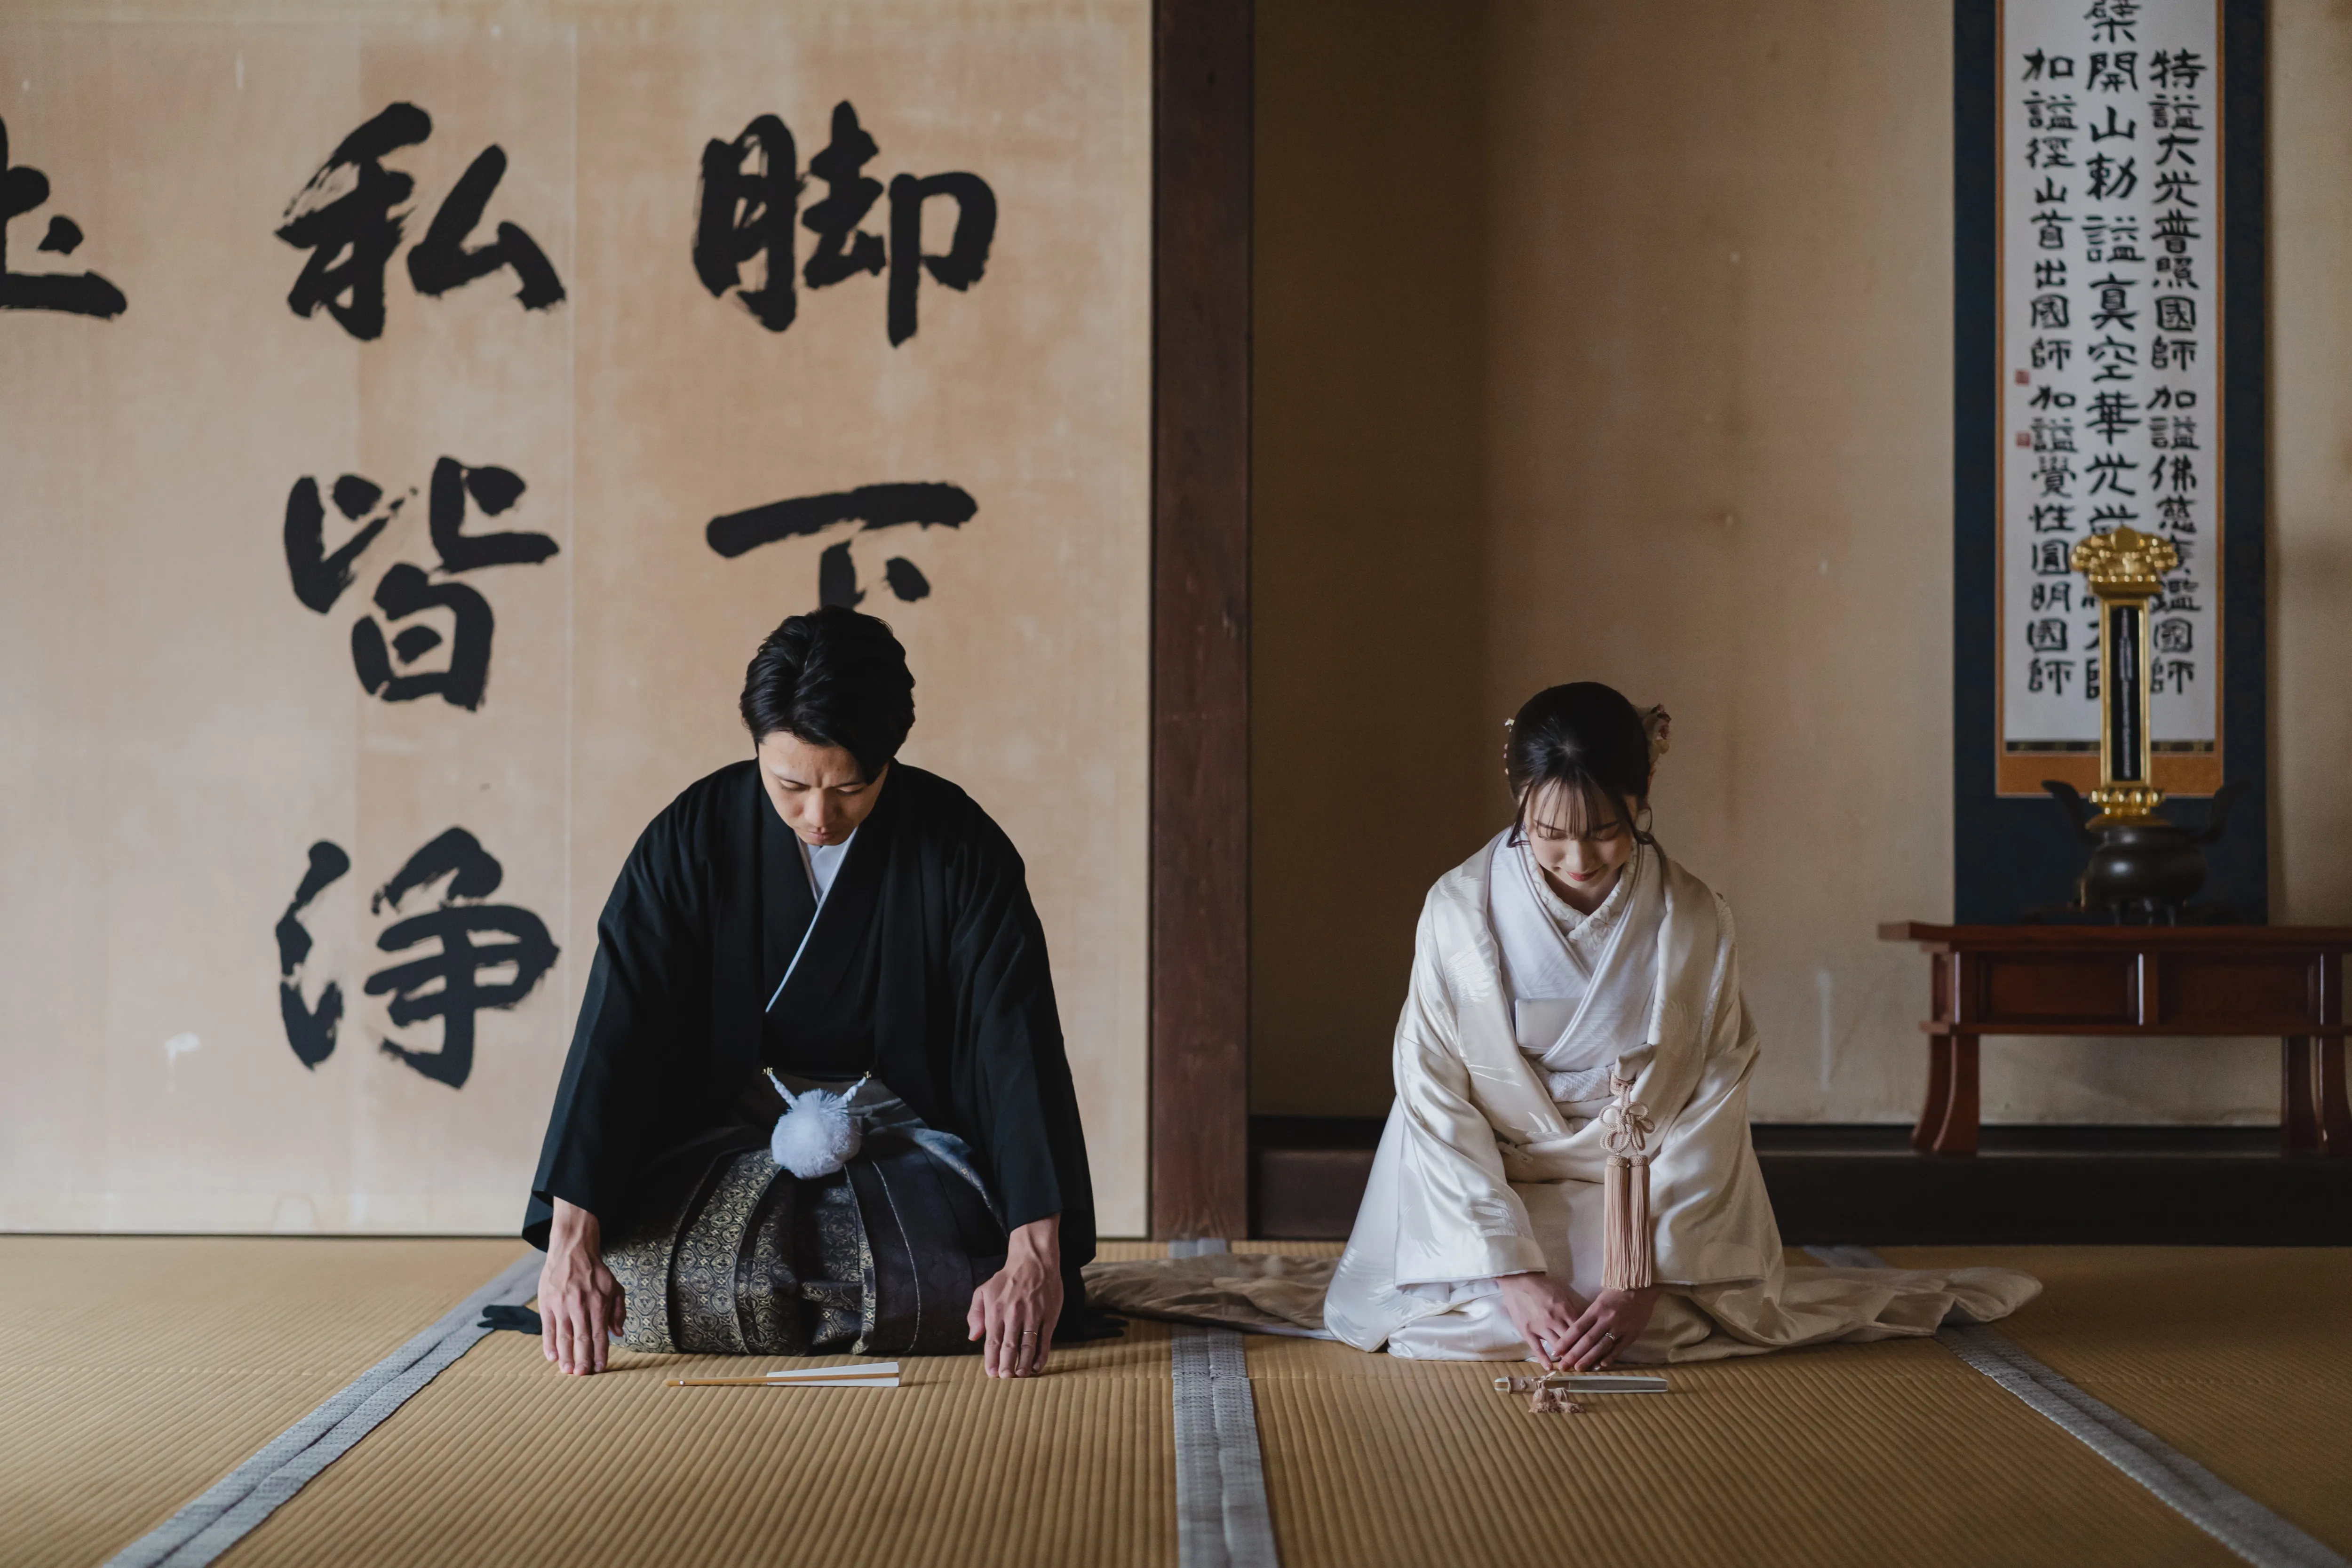 特諡大光普照國師 加諡佛慈鑑國師
檗開山勅諡真空華光
加諡徑山首出國師 加諡覺性圓明國師
脚下
私皆浄